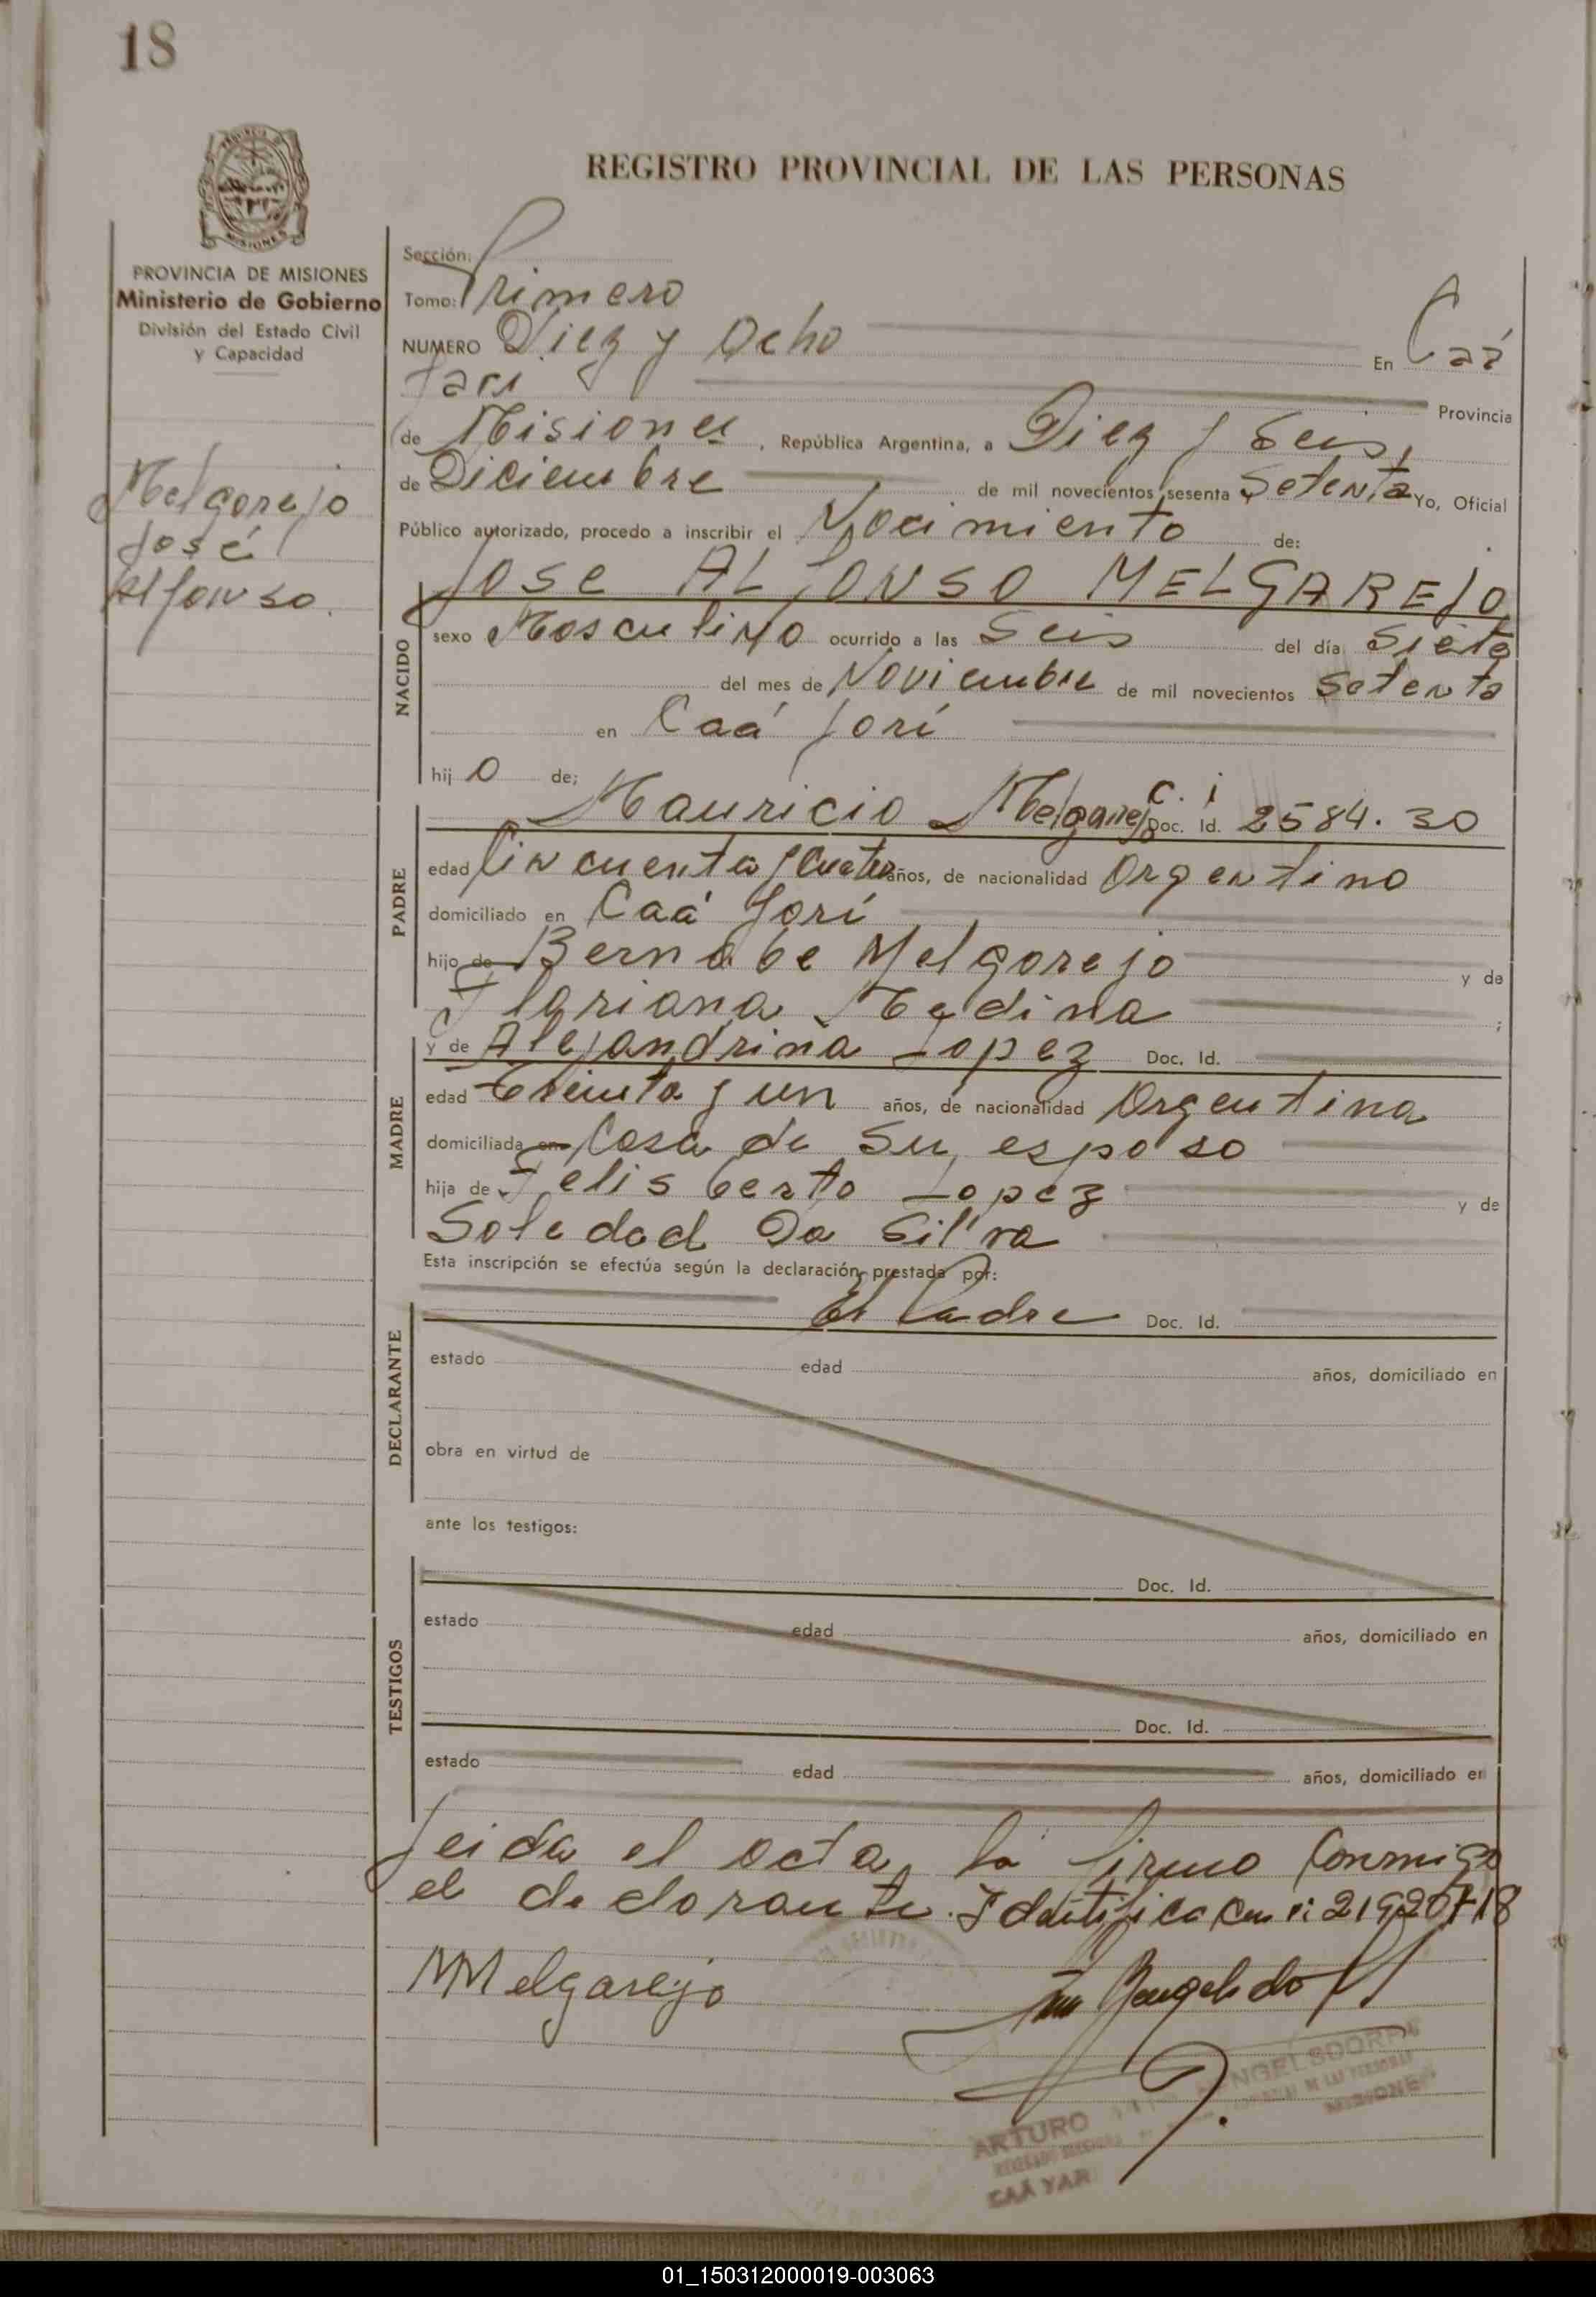 18
REGISTRO PROVINCIAL DE LAS PERSONAS
PROVINCIA DE MISIONES
Ministerio de Gobierno
División del Estado Civil
y Capacidad
Melgarejo
José
Alfonso.
Sección:
Tomo: Primero
NUMERO Diez y Ocho En Caá
Yari Provincia
de Misiones, República Argentina, a Diez y Seis
de Diciembre de mil novecientos sesenta Setenta Yo, Oficial
Público autorizado, procedo a inscribir el Nacimiento de:
JOSE ALFONSO MELGAREJO
NACIDO
sexo Masculino ocurrido a las Seis del día Siete
del mes de Noviembre de mil novecientos Setenta
en Caá Yarí
hijo de;
PADRE
Mauricio Melgarejo C. i Doc. Id. 2584.30
edad Cincuenta y Cuatro años, de nacionalidad Argentino
domiciliado en Caá Yarí
hijo de Bernabe Melgarejo y de
Ilariana Medina ;
MADRE
y de Alejandrina Lopez Doc. Id.
edad treinta y un años, de nacionalidad Argentina
domiciliada en Casa de Su esposo
hija de Felisberto Lopez y de
Soledad Da Silva
Esta inscripción se efectúa según la declaración prestada por:
DECLARANTE
El Padre Doc. Id.
estado edad años, domiciliado en
obra en virtud de
ante los testigos:
TESTIGOS
Doc. Id.
estado edad años, domiciliado en
Doc. Id.
estado edad años, domiciliado en
Leida el acta, la firma Conmigo
el declarante. Identifica con
MMelgarejo
ARTURO ENGELSDORFF
MISIONES
CAÁ YARI
01_150312000019-003063